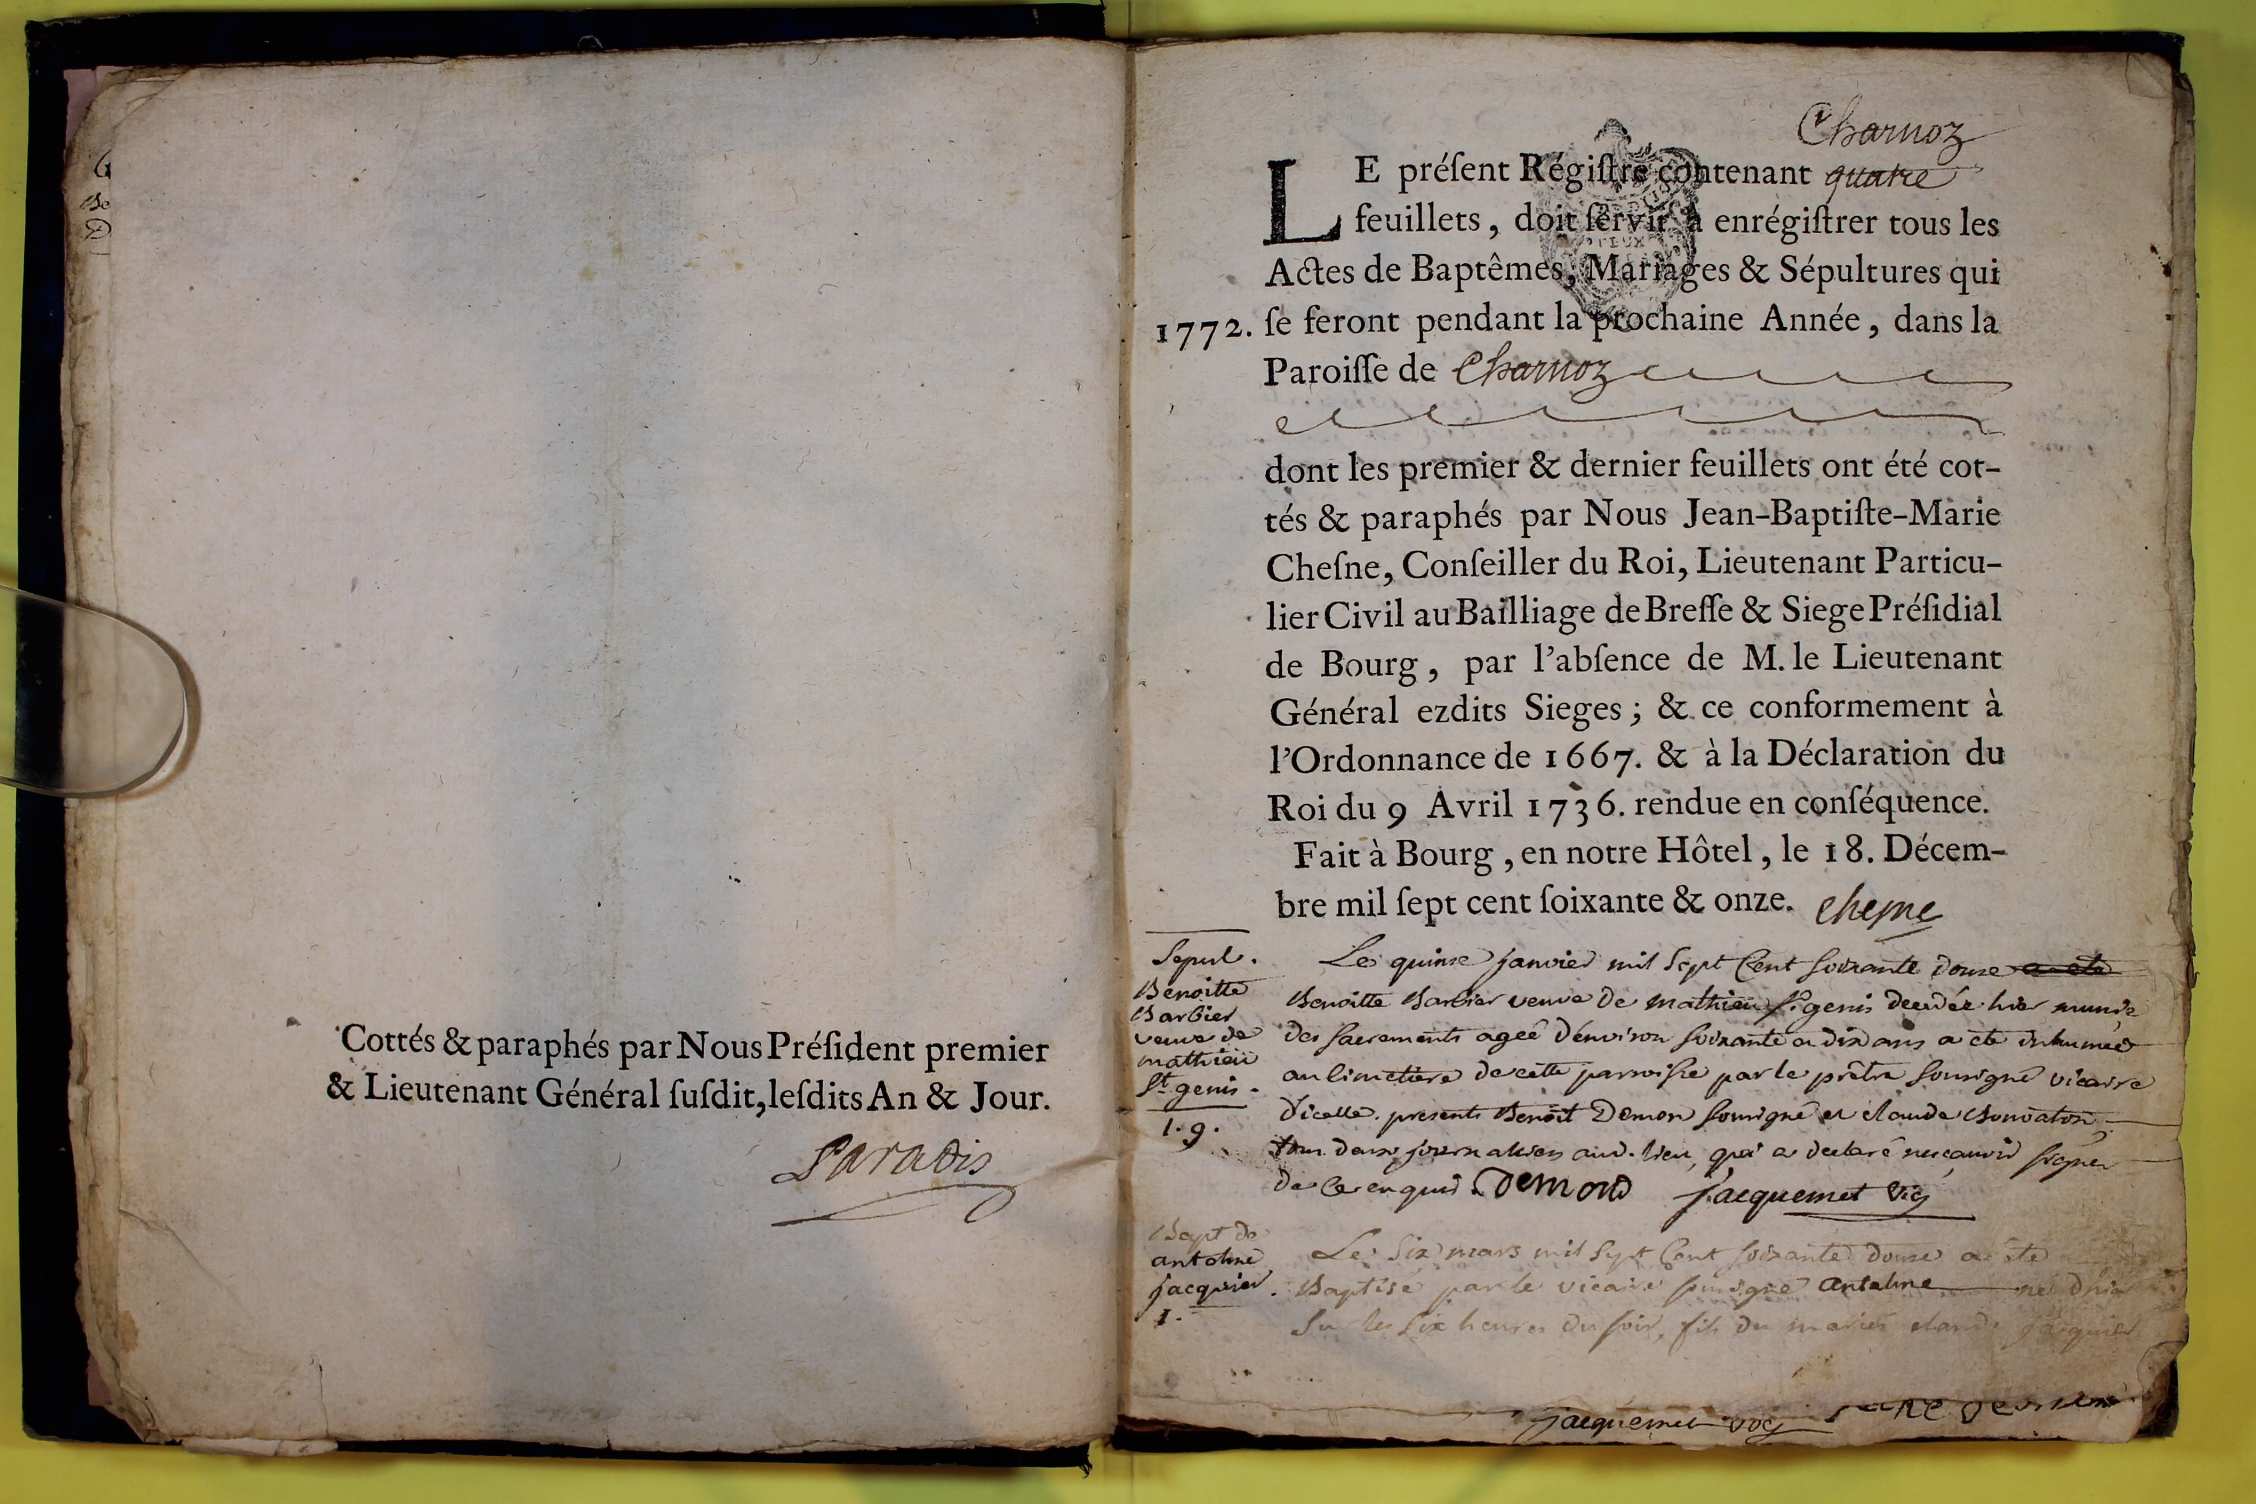 Cottés & paraphés par Nous Préſident premier
& Lieutenant Général ſuſdit, leſdits An & Jour.
Paradis
Charnoz
LE préſent Régiſtre contenant quatre
feuillets, doit ſervir à enrégiſtrer tous les
Actes de Baptêmes, Mariages & Sépultures qui
1772. ſe feront pendant la prochaine Année, dans la
Paroiſſe de Charnoz
dont les premier & dernier feuillets ont été cot-
tés & paraphés par Nous Jean-Baptiſte-Marie
Cheſne, Conſeiller du Roi, Lieutenant Particu-
lier Civil au Bailliage de Breſſe & Siege Préſidial
de Bourg, par l'abſence de M. le Lieutenant
Général ezdits Sieges; & ce conformement à
l'Ordonnance de 1667. & à la Déclaration du
Roi du 9 Avril 1736. rendue en conſéquence.
Fait à Bourg, en notre Hôtel, le 18. Décem-
bre mil ſept cent ſoixante & onze. Chesne
Sepul.
Benoitte
Barbier
veuve de
mathieu
St genis.
1. 9.
Le quinze janvier mil sept Cent soixante douze a eté
Benoitte Barbier veuve de mathieu St genis decedée hier munie
des sacrements ageé d'environ soixante a dix ans a eté inhumeé
au cimetiere de cette parroisse par le prêtre soussigné vicaire
d'icelle. presents Benoit Demon soussigné et claude Bonvaton
tous deux journaliers aud. lieu, qui a declaré ne sçavoir signer
de ce enquis. Demond jacquemet vic
Bapt de
antoine
jacquier.
1.
Le six mars mil sept Cent soixante douze a eté
Baptisé par le vicaire soussigné antoine né d'hier
Sur les six heures du soir, fils du mariés claude jacquier
jacquemet vic